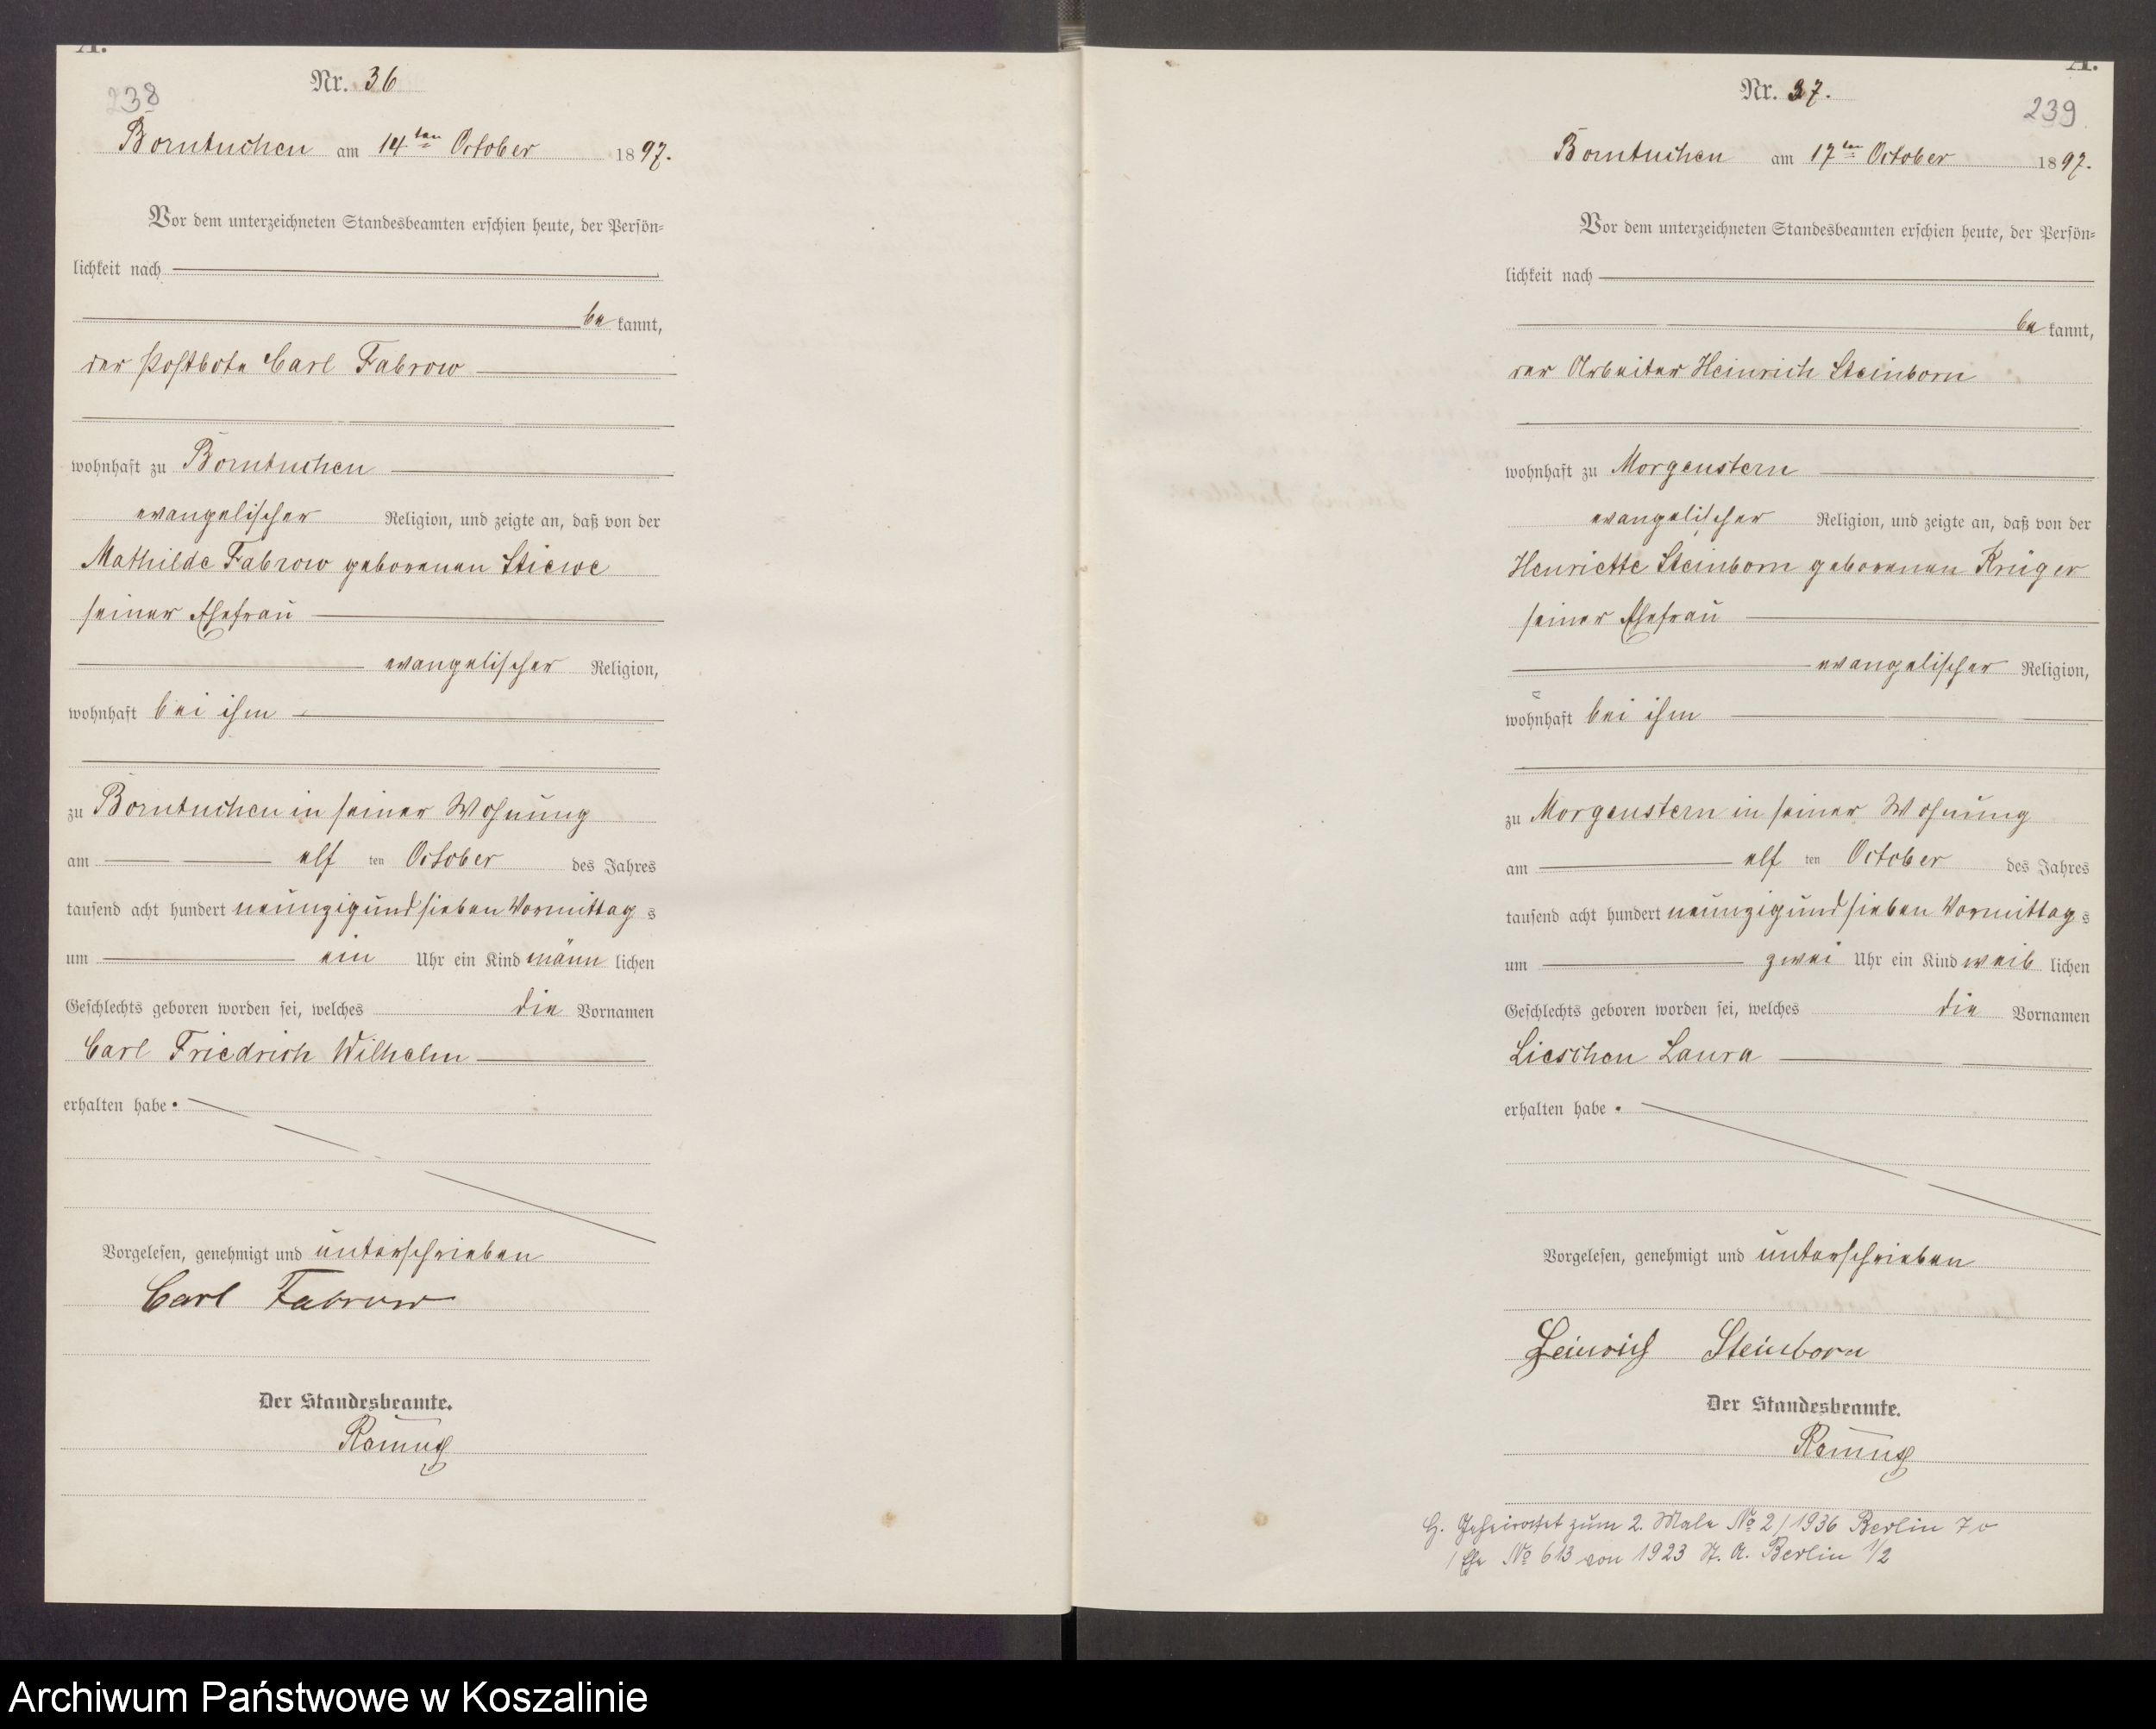 A.
238
Nr. 36
Borntuchen am 14ten October 1897.
Vor dem unterzeichneten Standesbeamten erschien heute, der Persön-
lichkeit nach
be kannt,
der Postbote Carl Fabrow
wohnhaft zu Borntuchen
evangelischer Religion, und zeigte an, daß von der
Mathilde Fabrow geborenen Stiewe
seiner Ehefrau
evangelischer Religion,
wohnhaft bei ihm
zu Borntuchen in seiner Wohnung
am elf ten October des Jahres
tausend acht hundert neunzig und sieben Vormittag s
um ein Uhr ein Kind männ lichen
Geschlechts geboren worden sei, welches die Vornamen
Carl Friedrich Wilhelm
erhalten habe.
Vorgelesen, genehmigt und unterschrieben
Carl Fabrow
Der Standesbeamte.
A.
Nr. 37.
239
Borntuchen am 17ten October 1897.
Vor dem unterzeichneten Standesbeamten erschien heute, der Persön-
lichkeit nach
be kannt,
der Arbeiter Heinrich Steinborn
wohnhaft zu Morgenstern
evangelischer Religion, und zeigte an, daß von der
Henriette Steinborn geborenen Krüger
seiner Ehefrau
evangelischer Religion,
wohnhaft bei ihm
zu Morgenstern in seiner Wohnung
am elf ten October des Jahres
tausend acht hundert neunzig und sieben Vormittag s
um zwei Uhr ein Kind weib lichen
Geschlechts geboren worden sei, welches die Vornamen
Lieschen Laura
erhalten habe.
Vorgelesen, genehmigt und unterschrieben
Heinrich Steinborn
Der Standesbeamte.
Geheiratet zum 2. Male No 2/1936 Berlin
1 Ehe No 613 von 1923 St. A. Berlin 1/2
Archiwum Państwowe w Koszalinie